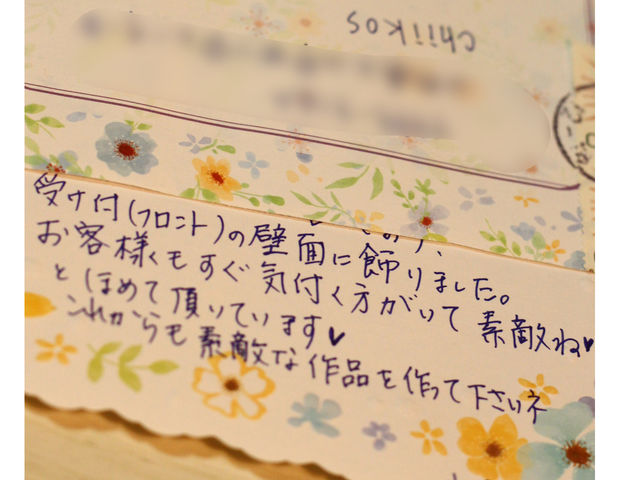 chiikos
受け付(フロント)の壁面に飾りました。
お客様くもすぐ気付く方がいて素敵ね♥
とほめて頂いています♥
これからも素敵な作品を作って下さいネ